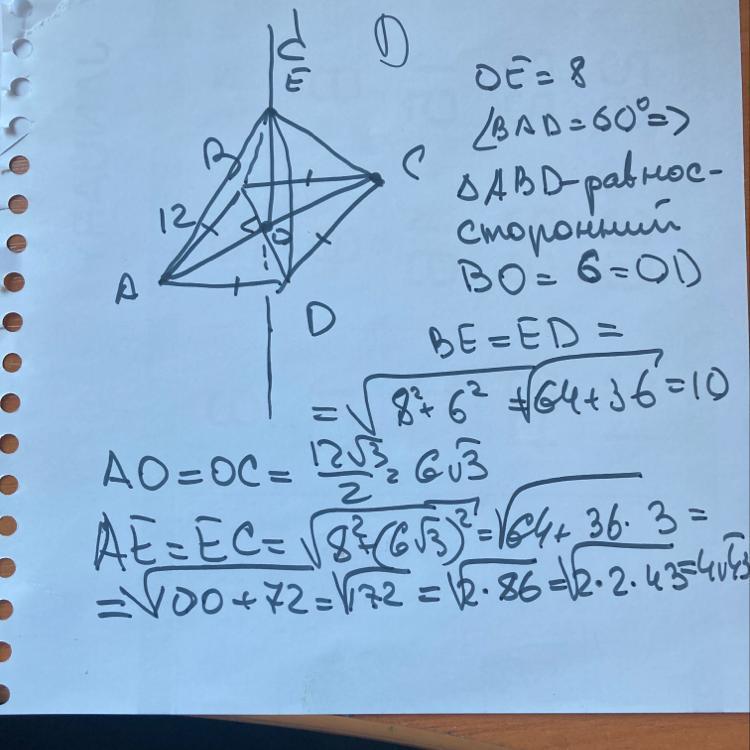 D
OE = 8
∠BAD = 60° =>
△ABD-равнос-
сторонний
BO = 6 = OD
BE = ED =
= √8² + 6² = √64 + 36 = 10
E
B
C
12
O
A
D
AO = OC = 12√3/2 = 6√3
AE = EC = √8² + (6√3)² = √64 + 36 · 3 =
= √100 + 72 = √172 = √2 · 86 = √2 · 2 · 43 = 4√43